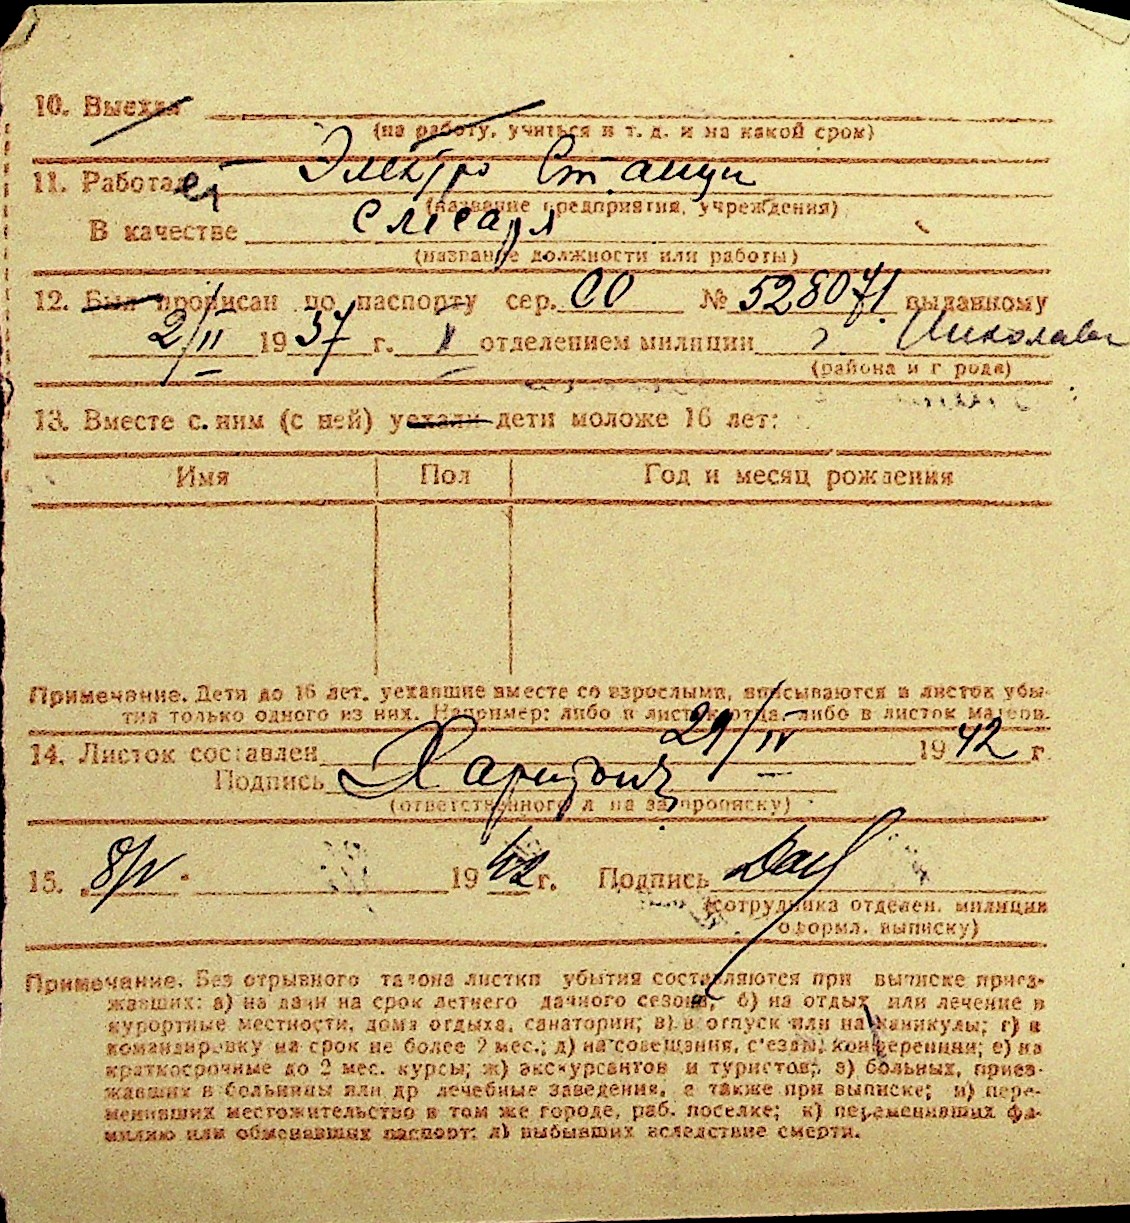 10. Выехал
(на работу, учиться и т. д. и на какой срок)
11. Работает Электро Станции
(название предприятия, учреждения)
В качестве слесаря
(название должности или работы)
12. Был прописан по паспорту сер. СО № 528071 выданному
2/II 1937 г. отделением милиции г. Николаев
(района и г рода)
13. Вместе с ним (с ней) уехали дети моложе 16 лет:
Имя Пол Год и месяц рождения
Примечание. Дети до 16 лет, уехавшие вместе со взрослыми, вписываются в листок убы-
тия только одного из них. Например: либо в листок отца, либо в листок матери.
14. Листок составлен 29/IV 1942 г.
Подпись
(ответственного л на за прописку)
15. 8/V 1942 г. Подпись
(сотрудника отделен. милиции
оформл. выписку)
Примечание. Без отрывного талона листки убытия составляются при выписке приез-
жавших: а) на дачи на срок летнего дачного сезона; б) на отдых или лечение в
курортные местности, дома отдыха, санатории; в) в отпуск или на каникулы; г) в
командировку на срок не более 2 мес.; д) на совещания, с'езды, конференции; е) на
краткосрочные до 2 мес. курсы; ж) экскурсантов и туристов; з) больных, приез-
жавших в больницы или др лечебные заведения, а также при выписке; и) пере-
менивших местожительство в том же городе, раб. поселке; к) переменивших фа-
милию или обменявших паспорт; л) выбывших вследствие смерти.